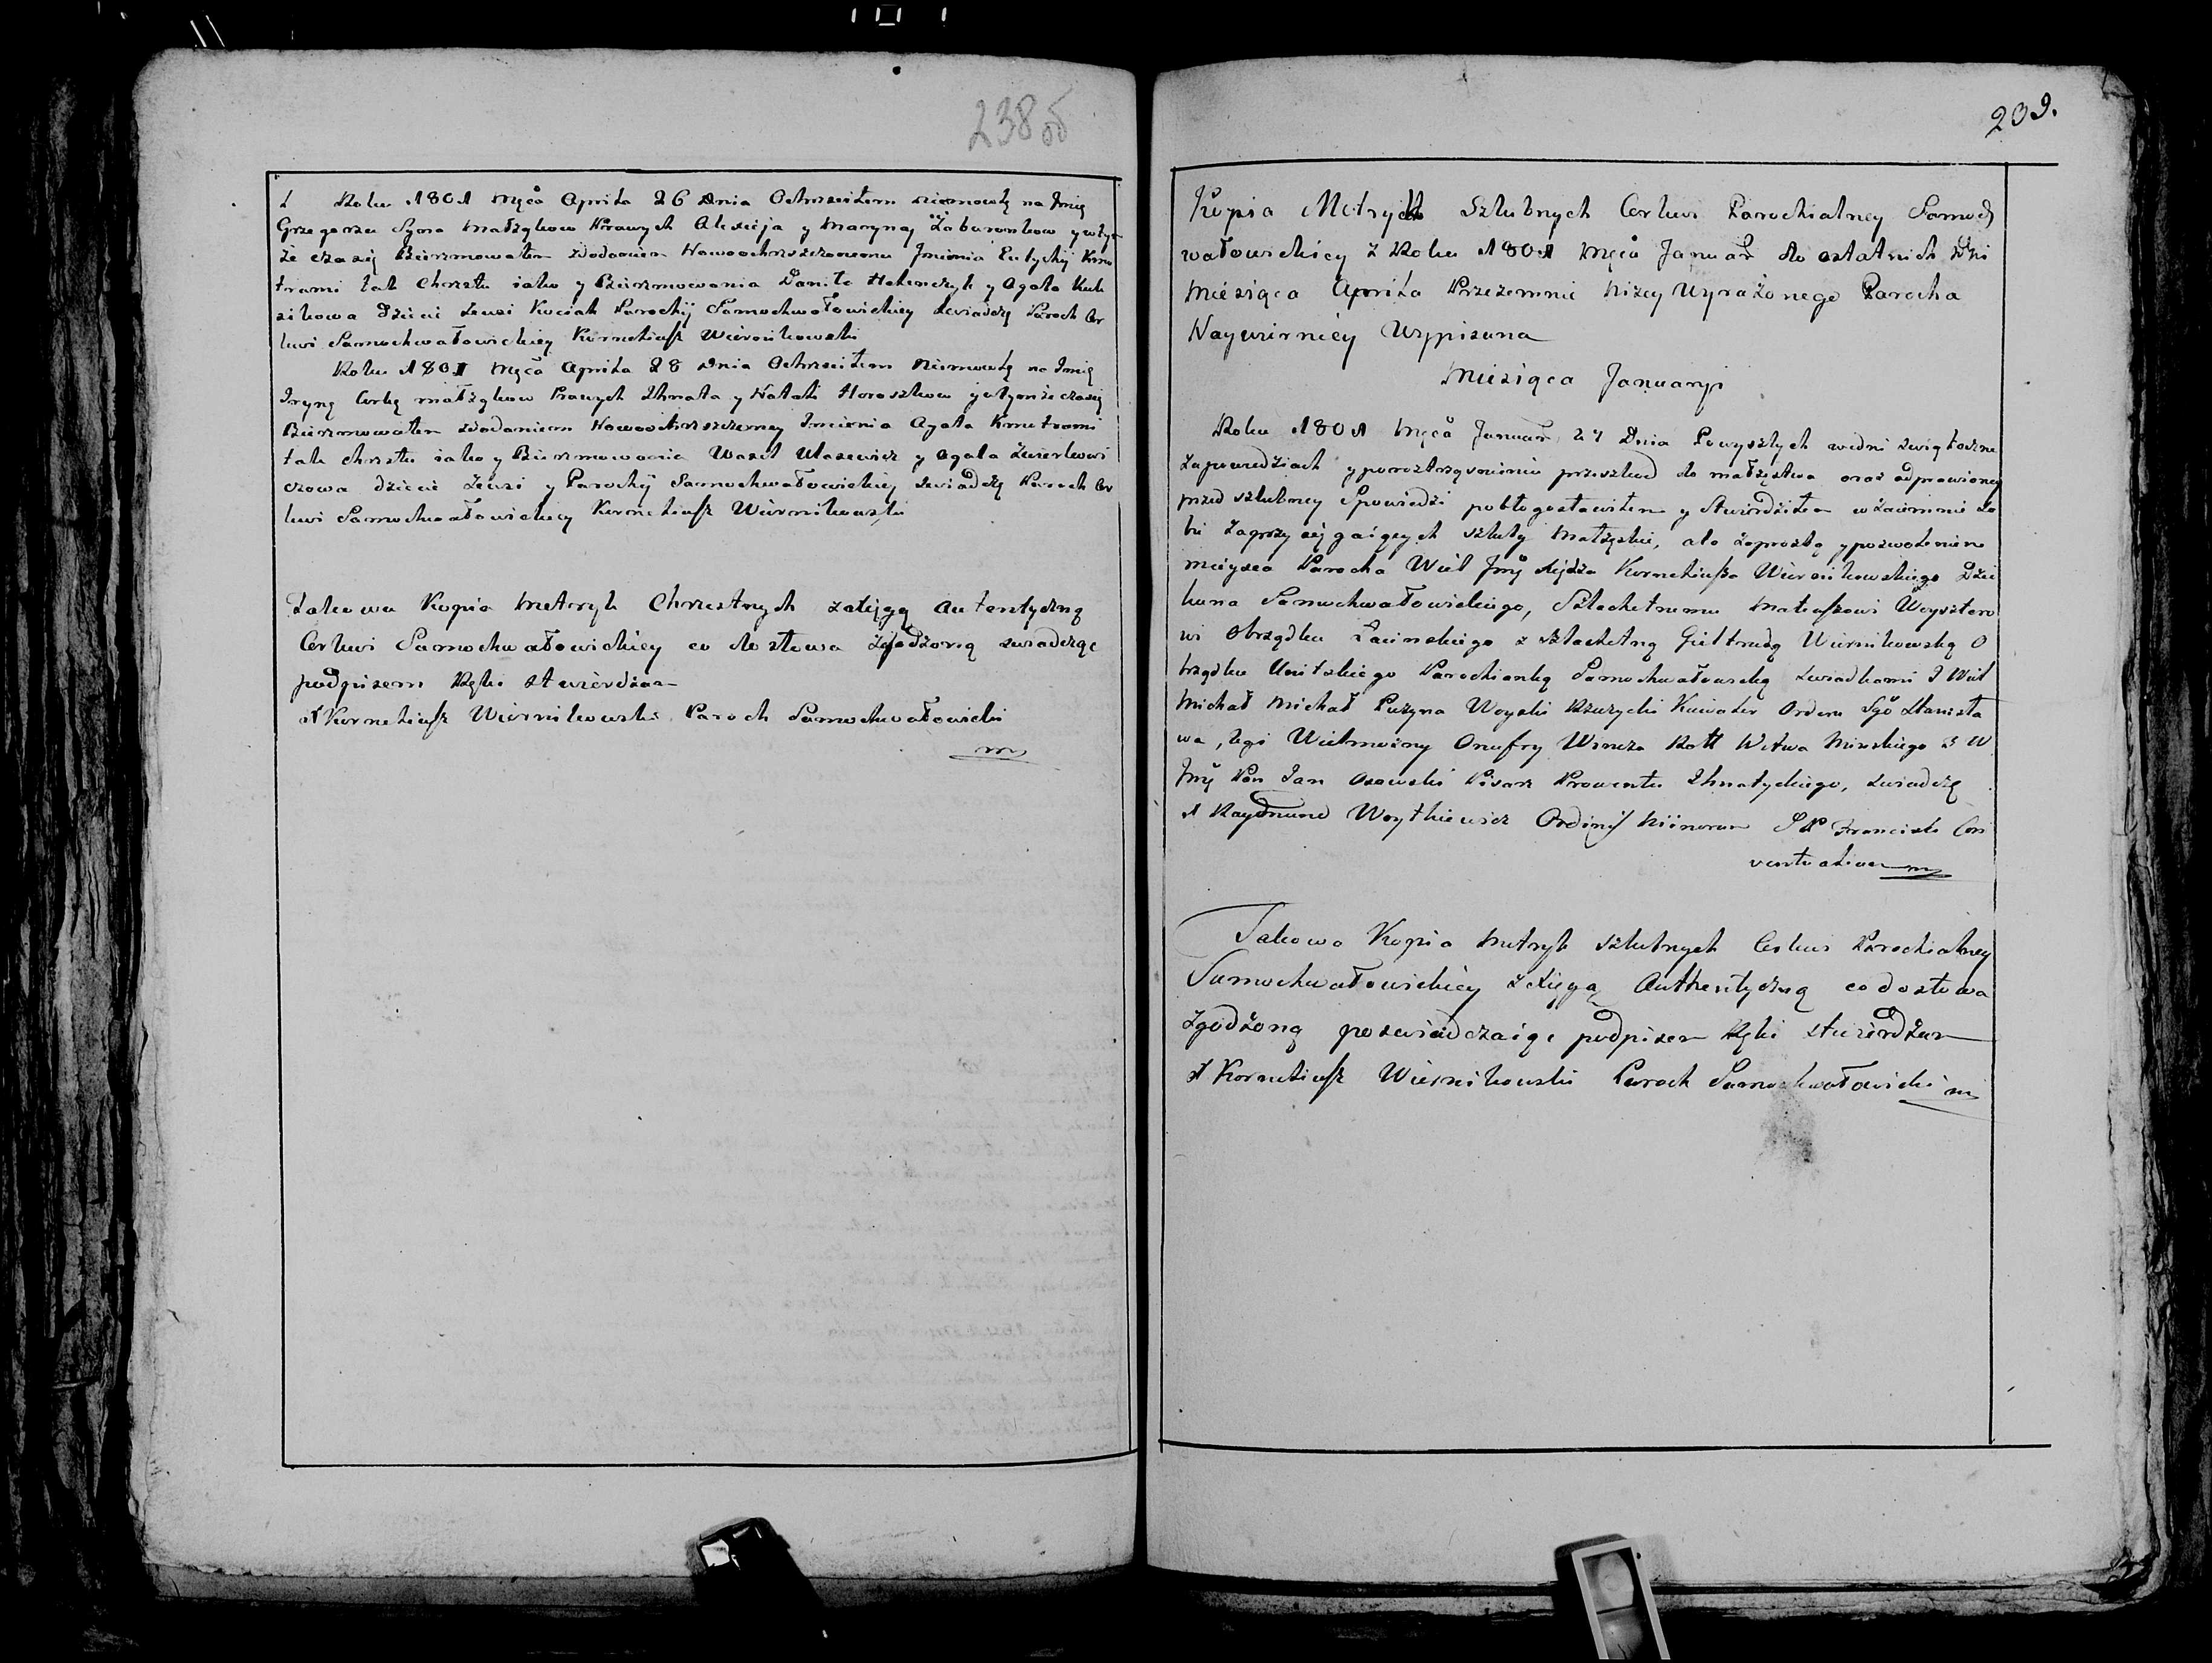 238 об
1 Roku 1801 Mcá Aprila 26 Dnia Ochrzciłem niemowlę na Imię
Grzegorza Syna Małżąkow Prawych Alexieja y Maryny Zaburonkow y wtym
że czasię Bierzmowałem zdodaniem Nowoochrzszczonemu Imienia Eutychij Kmo
trami tak Chrztu iako y Bierzmowania Daniło Halenczyk y Agata Kuk
sikowa Dziecie Zewsi Kuciak Parochij Samochwałowickiey świadczę Paroch Cer
kwi Samochwałowickiey Korneliusz Wiernikowski
Roku 1801 Mcá Aprila 28 Dnia Ochrzciłem Niemowlę na Imię
Irynę Corkę małżąkow Prawych Ihnata y Natali Horoszkow y wtymże czasię
Bierzmowałem zdodaniem Nowoochrzszczonney Imienia Agata Kmotrami
tak chrztu iako y Bierzmowania Wasil Ulasewicz y Agata Zwierkowi
czowa dziecie Zewsi y Parochij Samochwałowickiey świadczę Paroch Cer
kwi Samochwałowickiey Korneliusz Wiernikowski
Takowa Kopia Metryk Chrzestnych zxięgą Autentyczną
Cerkwi Samochwałowickiey co do słowa zgodzoną świadcząc
podpisem Ręki stwierdzam
X Korneliusz Wiernikowski Paroch Samochwałowicki
mp
239.
Kopia Metryk Szlubnych Cerkwi Parochialney Samoch
wałowickiey z Roku 1801 Mcá Januar do ostatnich Dni
Miesiąca Aprila Przezemnie niżey Wyrażonego Parocha
Naywierniey Wypisana
Miesiąca Januaryi
Roku 1801 Mcá Januar 27 Dnia Powyszłych wedni świąteczne
Zapowiedziach y poroztrząśnieniu przeszkod do małżęstwa oraz odprawioney
przed szlubney Spowiedzi pobłogosławiłem y Stwierdziłem wzaiemnie So
bie Zaprzysięgaiących szluby Małżęskie, ato Zaprośbą y pozwoleniem
mieysca Parocha Wiel Jmę Xiędza Korneliusza Wiernikowskiego Dzie
kana Samochwałowickiego, Szlachetnemu Mateuszowi Woysztoro
wi Obrządku Łacinskiego z Szlachetną Gieltrudą Wiernikowską O
brządku Unitskiego Parochianką Samochwałowską świadkami I Wiel
Michał Michał Puzyna Woyski Rzeczycki Kawaler Orderu Sgo Stanisła
wa, 2gi Wielmożny Onufry Wincza Rott Wctwa Minskiego 3 W
Jmę Pan Jan Osowski Pisarz Prowentu Ihnatyckiego, świadczę
X Raymund Woytkiewicz Ordinis Minorum S P Francisci Con
ventualium mp
Takowa Kopia Metryk szlubnych Cerkwi Parochialney
Samochwałowickiey zxięgą Authentyczną codosłowa
zgodzoną poświadczaiąc podpisem Ręki stwierdzam
X Korneliusz Wiernikowski Paroch Samochwałowicki mp